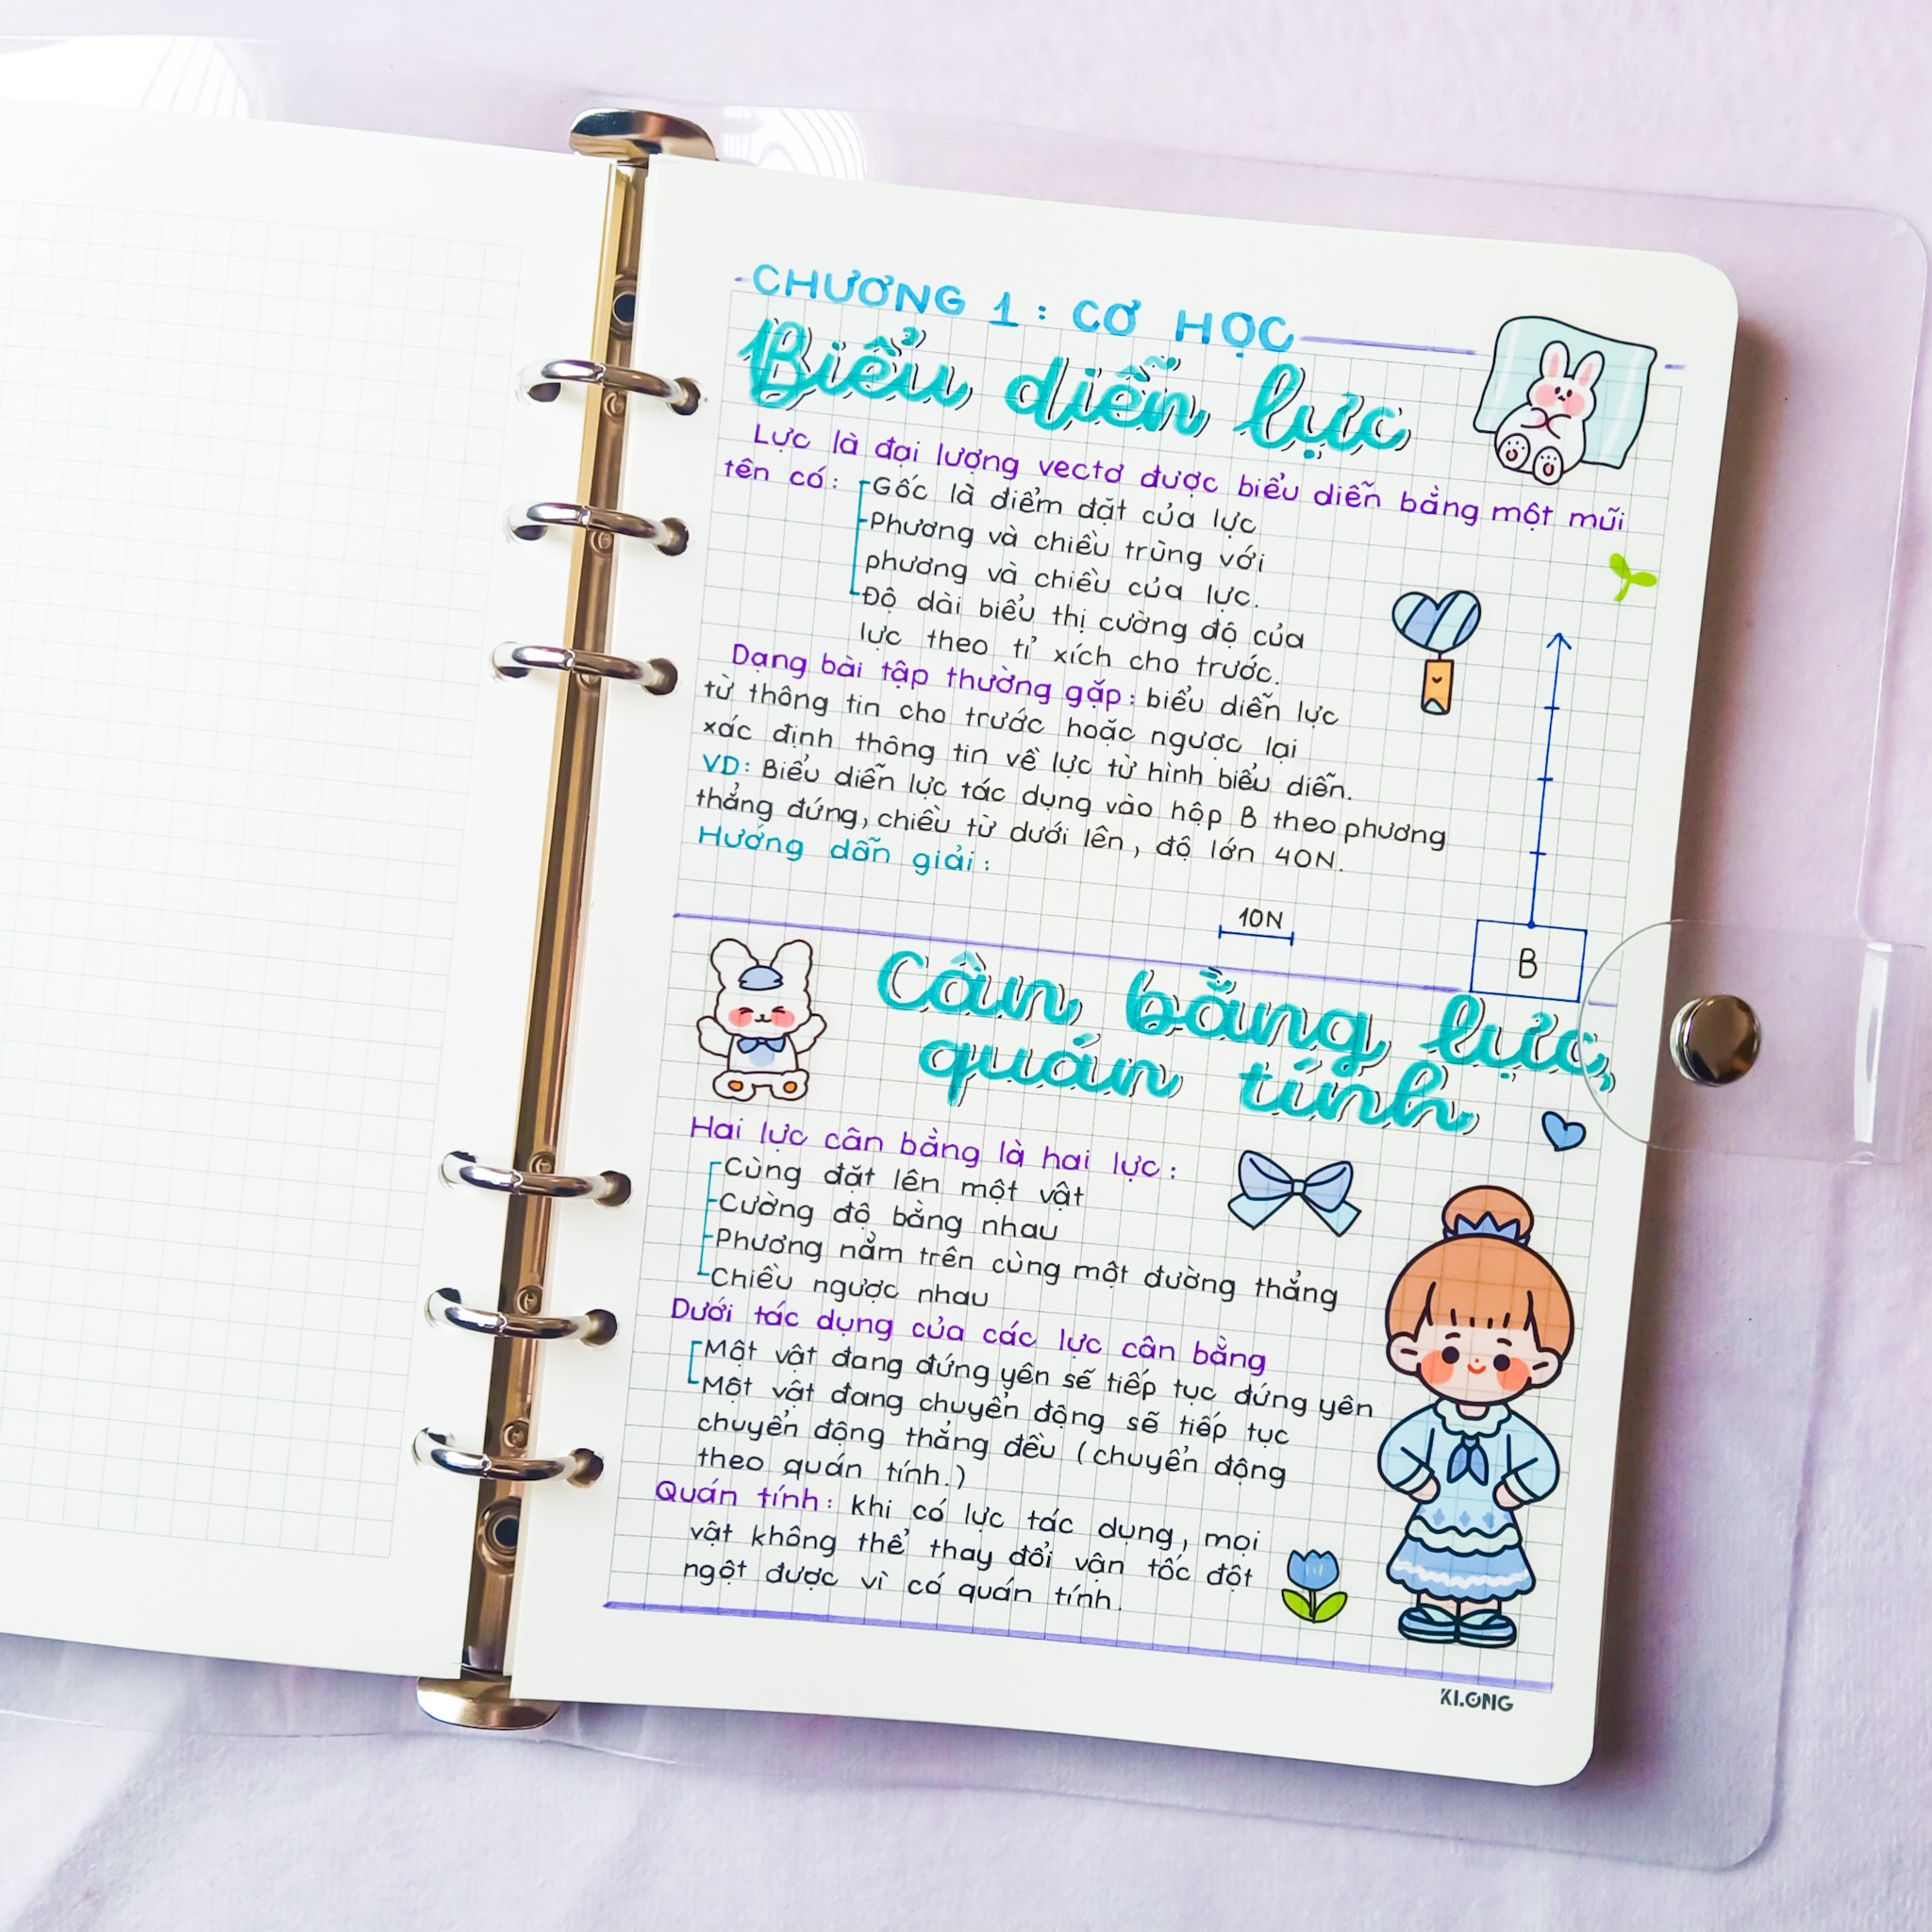 CHƯƠNG 1 : CƠ HỌC
Biểu diễn lực
Lực là đại lượng vectơ được biểu diễn bằng một mũi
tên có:
Gốc là điểm đặt của lực
Phương và chiều trùng với
phương và chiều của lực.
Độ dài biểu thị cường độ của
lực theo tỉ xích cho trước.
Dạng bài tập thường gặp: biểu diễn lực
từ thông tin cho trước hoặc ngược lại
xác định thông tin về lực từ hình biểu diễn.
VD: Biểu diễn lực tác dụng vào hộp B theo phương
thẳng đứng, chiều từ dưới lên, độ lớn 40N.
Hướng dẫn giải:
10N
B
Cân bằng lực,
quán tính
Hai lực cân bằng là hai lực:
Cùng đặt lên một vật
Cường độ bằng nhau
Phương nằm trên cùng một đường thẳng
Chiều ngược nhau
Dưới tác dụng của các lực cân bằng
Một vật đang đứng yên sẽ tiếp tục đứng yên
Một vật đang chuyển động sẽ tiếp tục
chuyển động thẳng đều (chuyển động
theo quán tính.)
Quán tính: khi có lực tác dụng, mọi
vật không thể thay đổi vận tốc đột
ngột được vì có quán tính.
KLONG